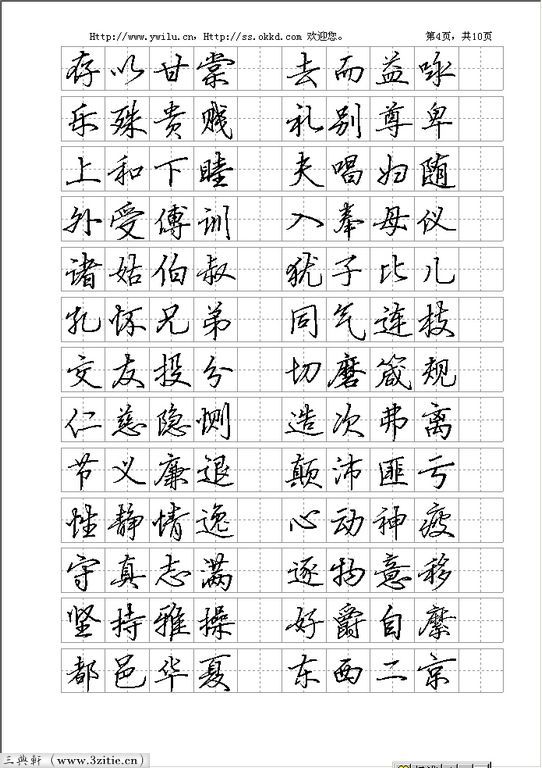 Http://www.ywilu.cn, Http://ss.okkd.com 欢迎您。 第4页，共10页
存以甘棠 去而益咏
乐殊贵贱 礼别尊卑
上和下睦 夫唱妇随
外受傅训 入奉母仪
诸姑伯叔 犹子比儿
孔怀兄弟 同气连枝
交友投分 切磨箴规
仁慈隐恻 造次弗离
节义廉退 颠沛匪亏
性静情逸 心动神疲
守真志满 逐物意移
坚持雅操 好爵自縻
都邑华夏 东西二京
三典轩 (www.3zitie.cn)